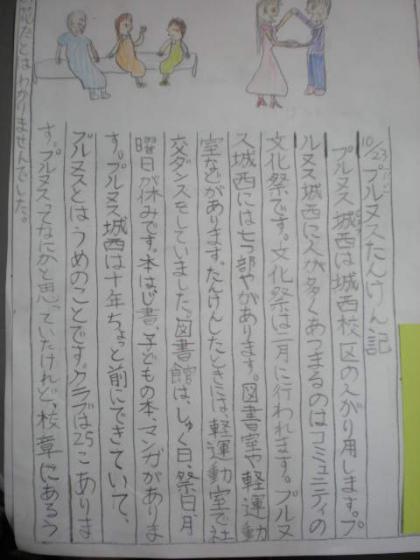 10/23 プルヌスたんけん記
プルヌス城西は城西校区の人がり用します。プ
ルヌス城西に人が多くあつまるのはコミュニティの
文化祭です。文化祭は二月に行われます。プルヌ
ス城西には七つ部やがあります。図書室や、軽運動
室などがあります。たんけんしたときには、軽運動室で社
交ダンスをしていました。図書館は、しゅく日、祭日、月
曜日が休みです。本は、じ書、子どもの本、マンガがありま
す。プルヌス城西は十年ちょっと前にできていて、
プルヌスとはうめのことです。クラブは25こありま
す。プルヌスってなにかと思っていたけれど、校章にあるう
だとはわかりませんでした。